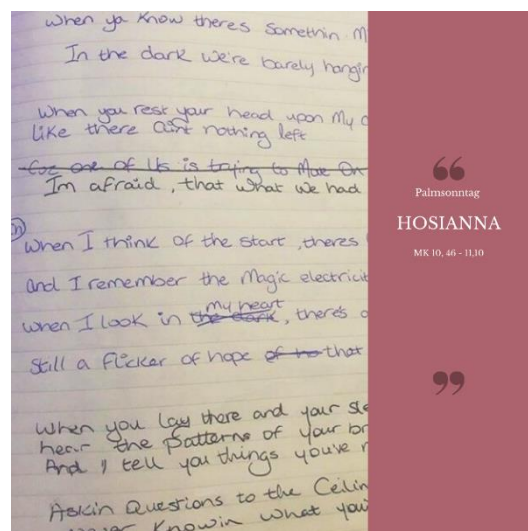 When ya know theres Somethin M
In the dark we're barely hangin
When you rest your head upon My c
Like there aint nothing left
for one of Us is trying to Move On
Im afraid, that what we had
When I think of the start, theres
and I remember the Magic electricit
when I look in the dark my heart, there's a
Still a flicker of hope that
When you lay there and your sle
hear the Patterns of your br
And I tell you things youve n
Askin Questions to the Ceilin
Knowin what you
“
Palmsonntag
HOSIANNA
MK 10, 46 - 11,10
”